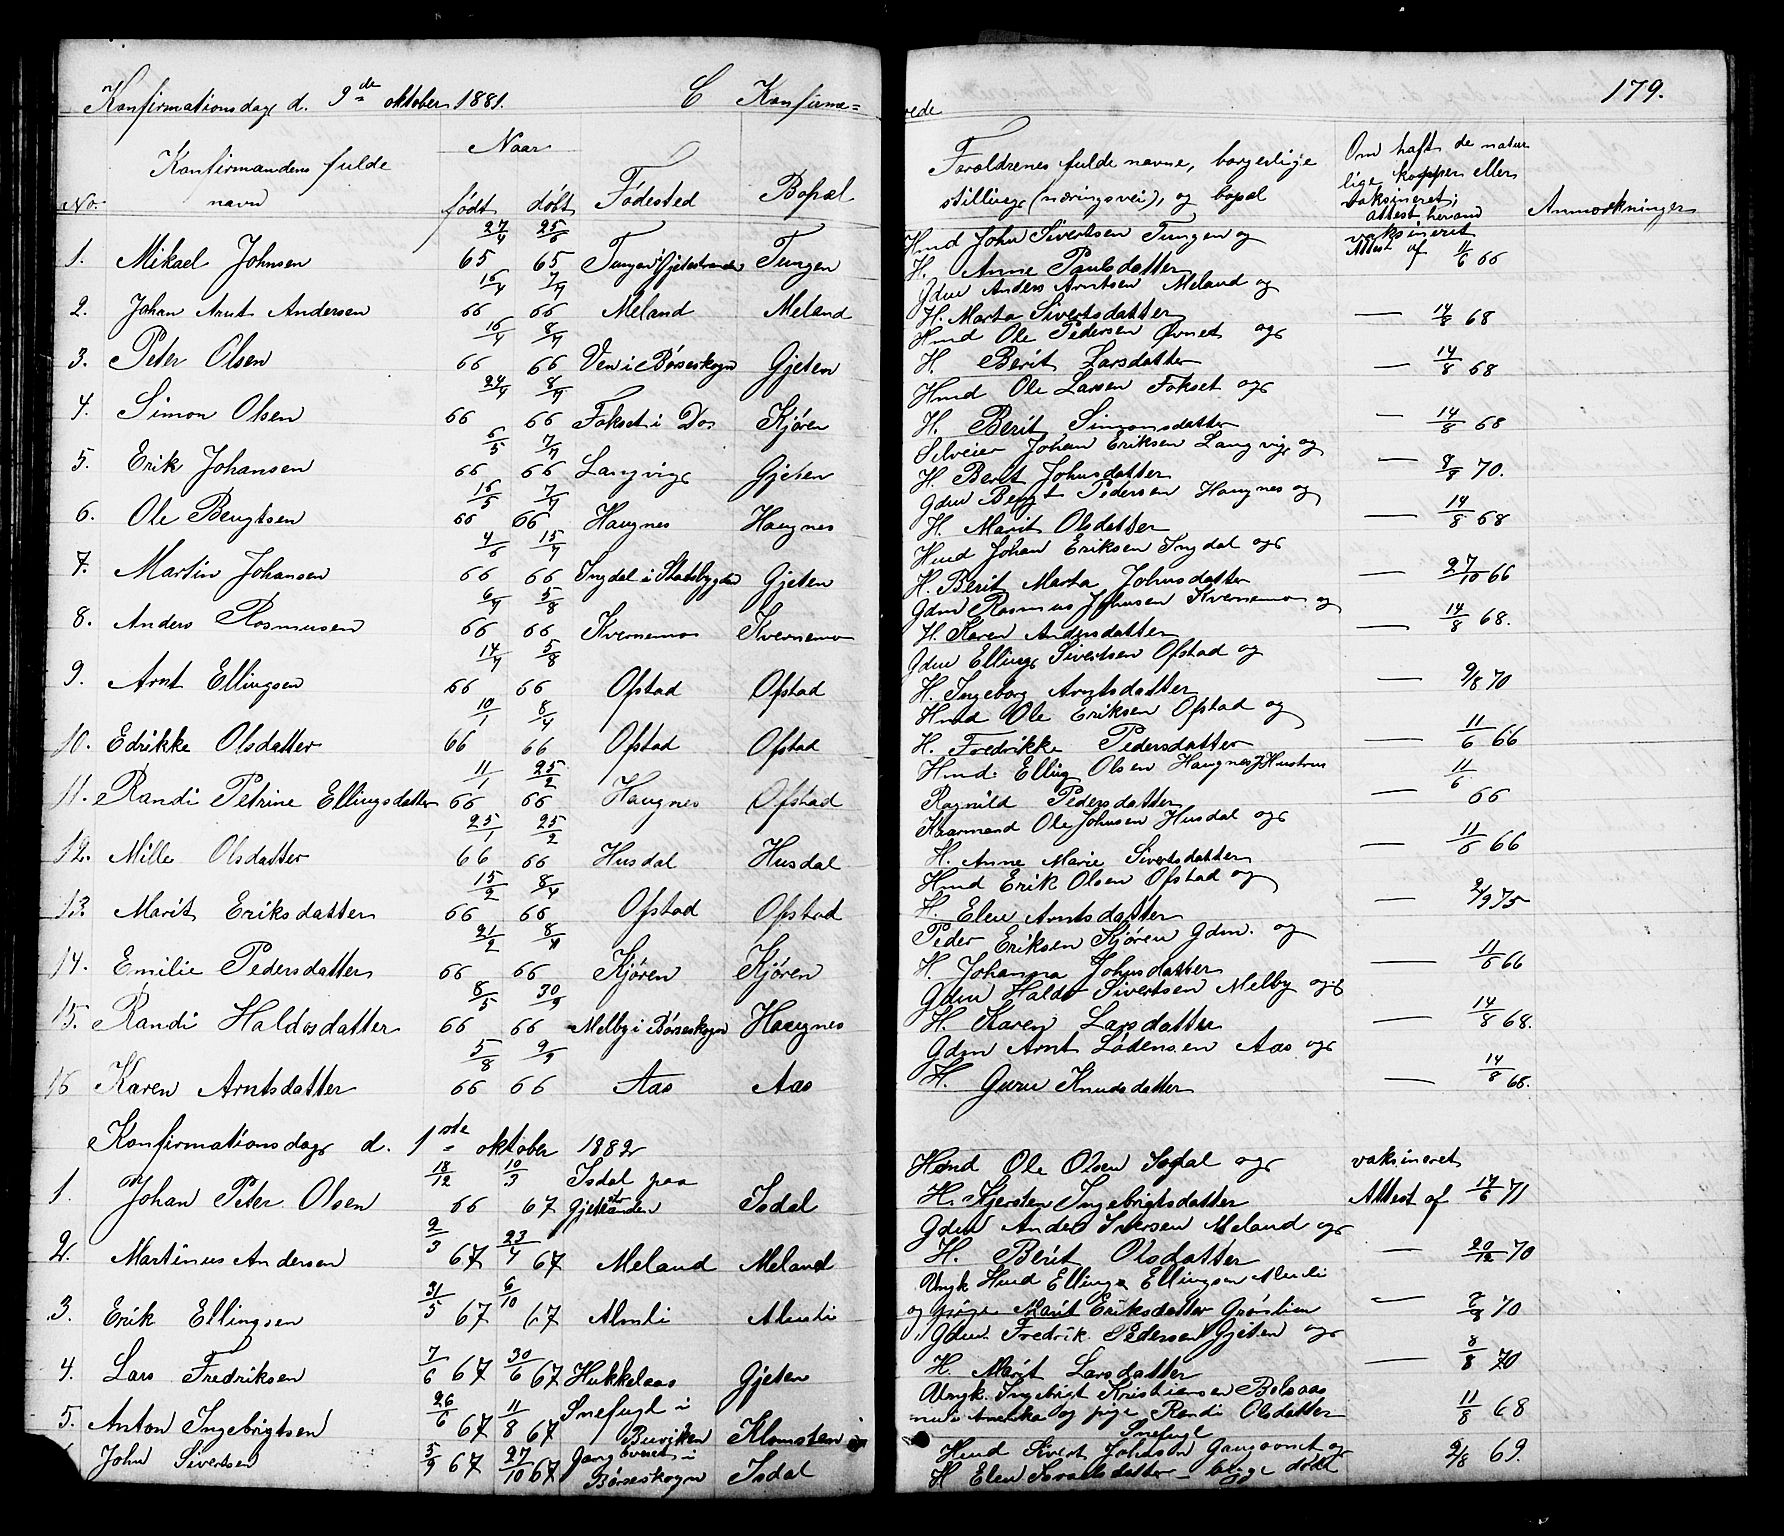 Konfirmationsdag d. 9de oktober 1881. C Konfirme=
rede 179.
No. Konfirmandens fulde navn Naar født døbt Fødested Bopæl Foraldrenes fulde navne, borgerlige stilling (næringsvei), og bopæl Om haft de naturlige kopper eller vaksineret; attest herom Anmærkninger
1. Mikael Johnsen 27/4 65 25/6 65 Tungen i Gjetestranden Tungen Hmd John Sivertsen Tungen og H. Anne Paulsdatter vaksineret Attest af 11/6 66
2. Johan Arnt Andersen 15/4 66 7/4 66 Meland Meland Gdm Anders Arntsen Meland og H. Marta Sivertsdatter — 14/8 68
3. Peter Olsen 16/4 66 8/4 66 Ven i Børseskogn Gjeten Hmd Ole Pedersen Øvnet og H. Berit Larsdatter — 14/8 68
4. Simon Olsen 24/4 66 8/4 66 Fokset i Do Kjøren Hmd Ole Larsen Fokset og H. Berit Simonsdatter — 14/8 68
5. Erik Johansen 6/5 66 7/4 66 Langvig Gjeten Selveier Johan Eriksen Langvig og H. Berit Johnsdatter — 8/8 70.
6. Ole Bengtsen 16/5 66 7/4 66 Haugnes Haugnes Gdm Bengt Pedersen Haugnes og H. Marit Olsdatter — 14/8 68
7. Martin Johansen 4/6 66 15/4 66 Ingdal i Stadsbygden Gjeten Hmd Johan Eriksen Ingdal og H. Berit Marta Johnsdatter — 27/10 66
8. Anders Rasmusen 6/4 66 5/8 66 Kvernemo Kvernemo Gdm Rasmus Johnsen Kvernemo og H. Karen Andersdatter — 14/8 68.
9. Arnt Ellingsen 14/4 66 5/8 66 Ofstad Ofstad Gdm Elling Sivertsen Ofstad og H. Ingeborg Arntsdatter — 9/8 70
10. Edrikke Olsdatter 10/1 66 8/4 66 Ofstad Ofstad Hmd Ole Eriksen Ofstad og H. Fredrikke Pedersdatter — 11/6 66
11. Randi Petrine Ellingsdatter 11/1 66 25/2 66 Haugnes Ofstad Hmd. Elling Olsen Haugnes, Hustru Ragnild Pedersdatter — 11/6 66
12. Mille Olsdatter 25/1 66 25/2 66 Husdal Husdal Kaarmand Ole Johnsen Husdal og H. Anne Marie Sivertsdatter — 11/6 66
13. Marit Eriksdatter 15/2 66 8/4 66 Ofstad Ofstad Hmd Erik Olsen Ofstad og H. Elen Arntsdatter — 2/9 75
14. Emilie Pedersdatter 21/2 66 8/4 66 Kjøren Kjøren Peder Eriksen Kjøren Gdm. og H. Johanna Johnsdatter — 11/6 66
15. Randi Haldosdatter 8/5 66 30/9 66 Melby i Børseskogn Haugnes Gdm Haldo Sivertsen Melby og H. Karen Larsdatter — 14/8 68.
16 Karen Arntsdatter 5/8 66 9/9 66 Aas Aas Gdm Arnt Lødensen Aas og H. Guru Knudsdatter — 14/8 68.
Konfirmationsdag d. 1ste oktober 1882
1. Johan Peter Olsen 18/12 66 10/3 67 Isdal paa Gjetestranden Isdal Hmd Ole Olsen Isdal og H. Kjersten Ingebrigtsdatter vaksineret Attest af 14/6 71
2. Martinus Andersen 2/3 67 23/4 67 Meland Meland Gdm Anders Iversen Meland og H. Berit Olsdatter — 20/12 70
3. Erik Ellingsen 31/5 67 6/10 67 Almli Almli Ungk Hmd Elling Ellingsen Almli og pige Marit Eriksdatter Grøslien — 9/8 70
4. Lars Fredriksen 7/6 67 30/6 67 Hukkelaas Gjeten Gdm. Fredrik Pedersen Gjeten og H. Marit Larsdatter — 8/8 70
5. Anton Ingebrigtsen 26/6 67 11/8 67 Snefugl i Buviken Klomsten Ungk. Ingebrigt Kristiansen Bolsaas nu i Amerika og pige Randi Olsdatter Snefugl 11/8 68
John Sivertsen 5/9 67 27/10 67 i Børseskogn Isdal Hmd Sivert Johnsen og H Elen — begge døde 9/8 69.